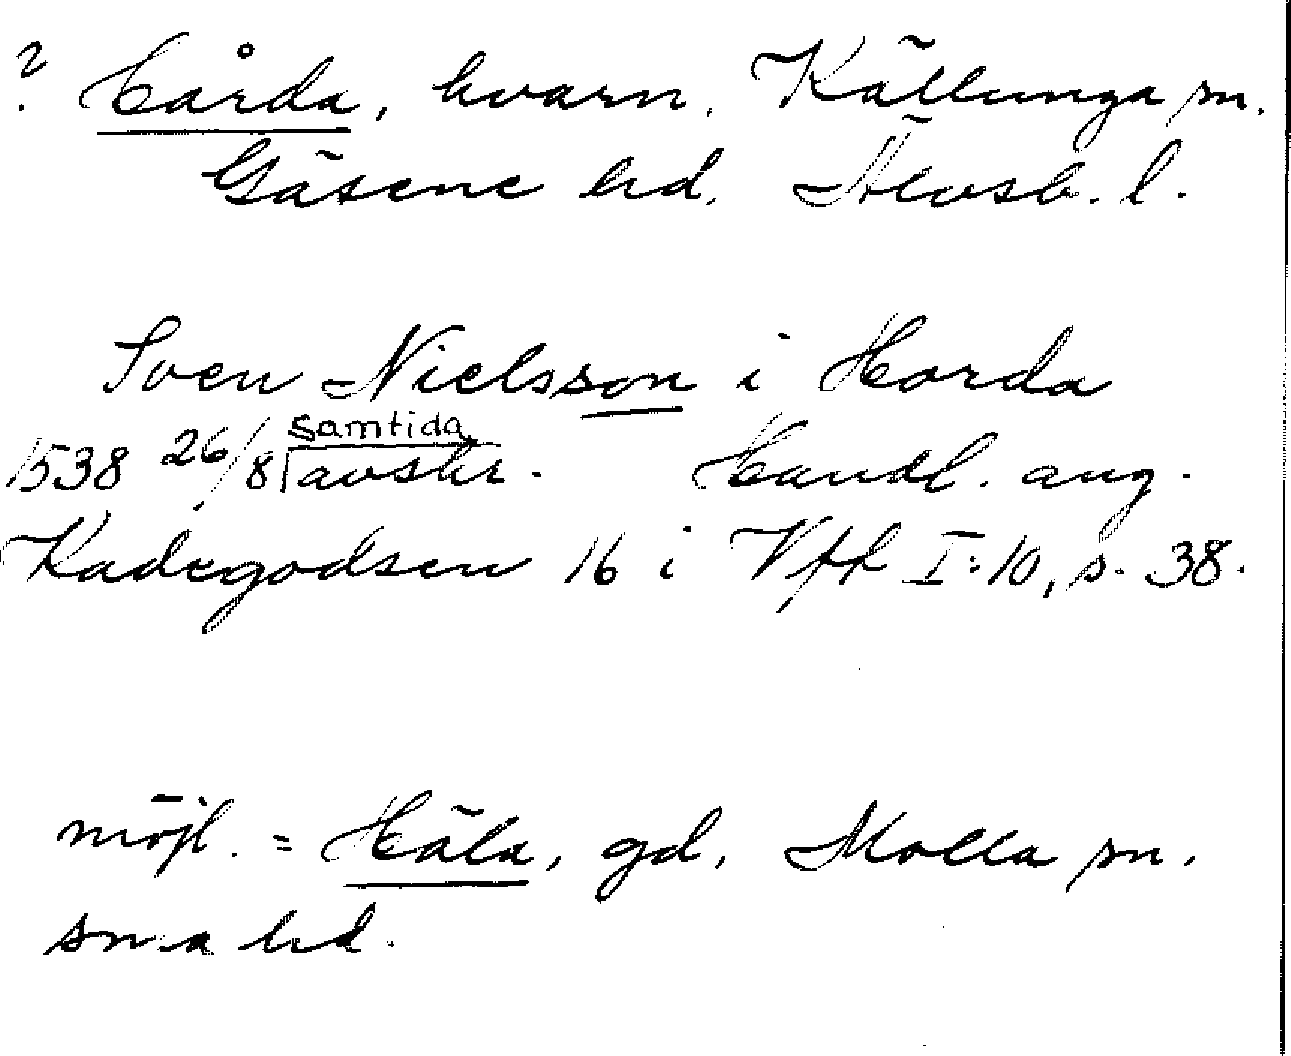 ? Hårda, kvarn, Källunga sn.
Gäsene hd. Älvsb. l.
Sven Nielsson i Horda
samtida
1538 26/8 avskr. Handl. ang.
Kadegodsen 16 i Vfh I:10, s. 38.
möjl. = Häla, gd, Molla sn.
sma hd.